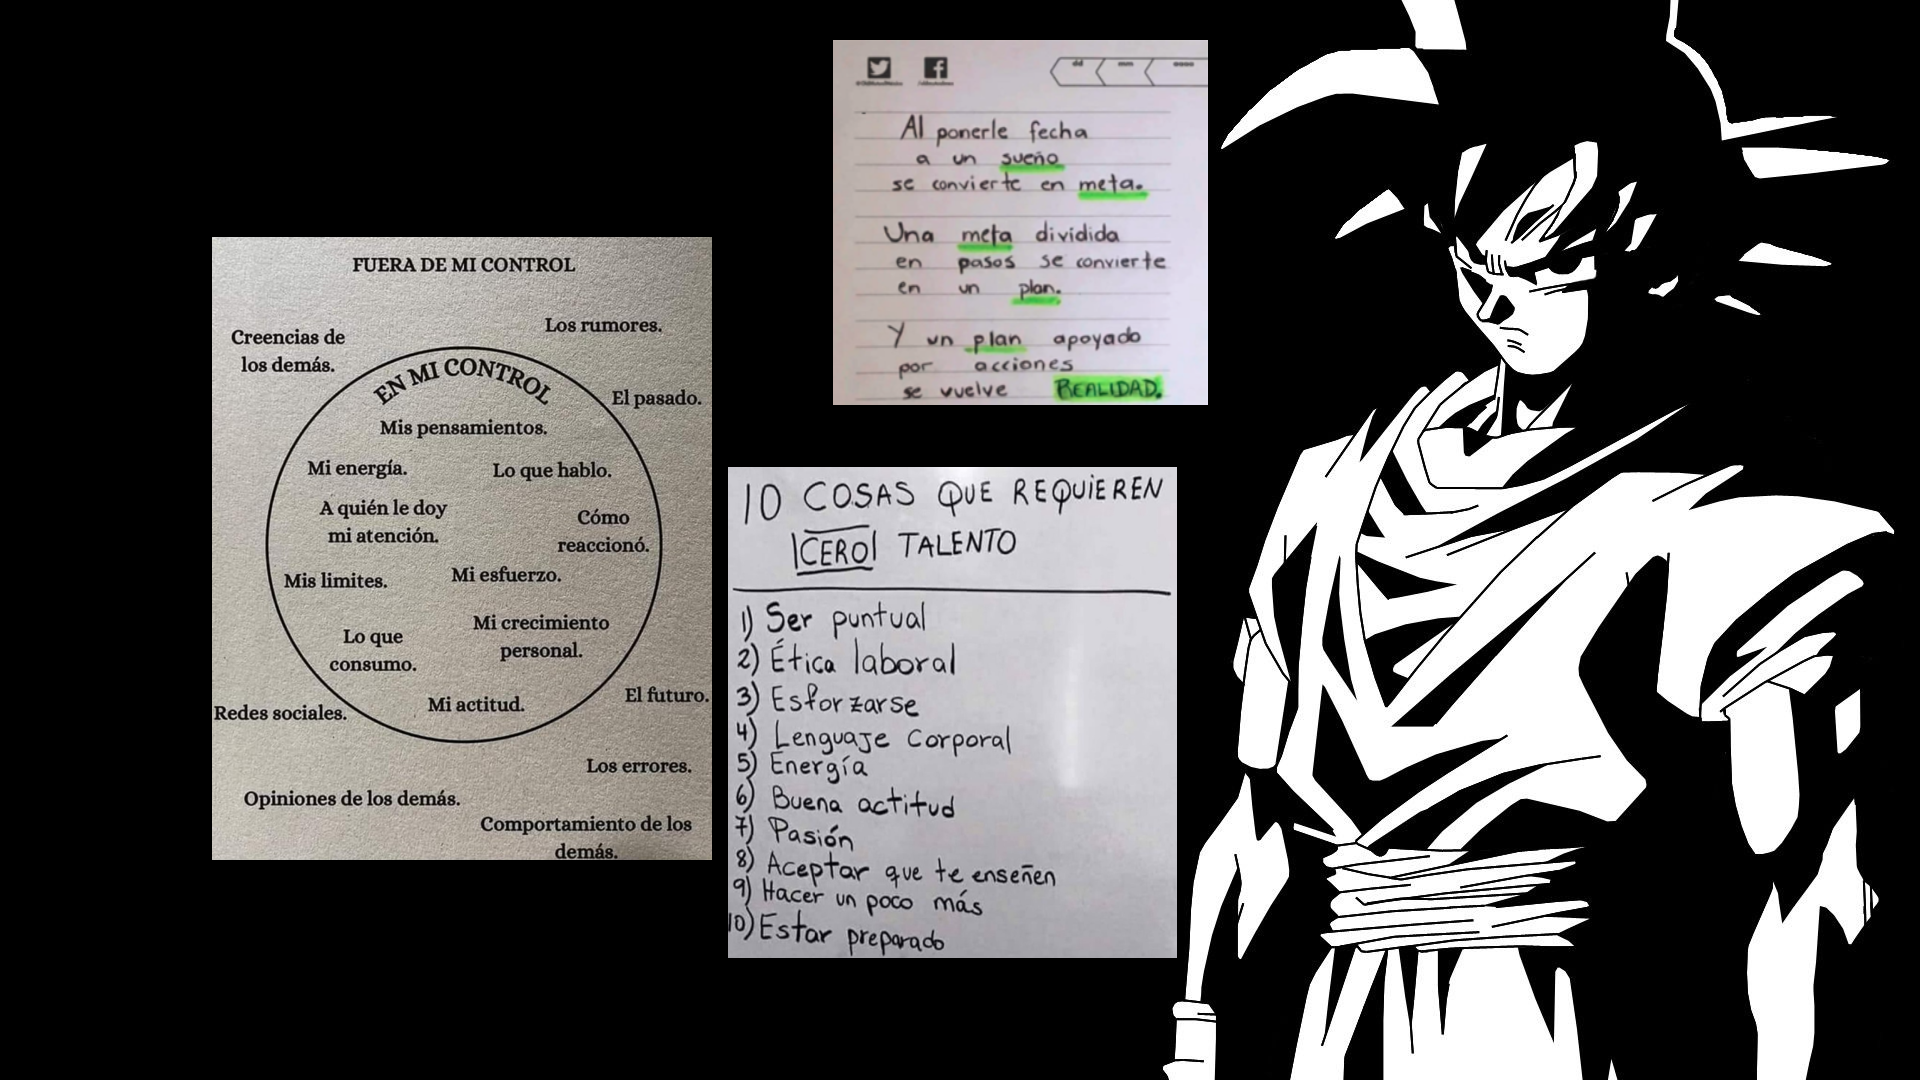 FUERA DE MI CONTROL
Los rumores.
Creencias de
los demás.
EN MI CONTROL
El pasado.
Mis pensamientos.
Mi energía.
Lo que hablo.
A quién le doy
mi atención.
Cómo
reaccionó.
Mis limites.
Mi esfuerzo.
Mi crecimiento
personal.
Lo que
consumo.
Mi actitud.
El futuro.
Redes sociales.
Los errores.
Opiniones de los demás.
Comportamiento de los
demás.
Al ponerle fecha
a un sueño
se convierte en meta.
Una meta dividida
en pasos se convierte
en un plan.
Y un plan apoyado
por acciones
se vuelve REALIDAD.
10 COSAS QUE REQUIEREN
CERO TALENTO
1) Ser puntual
2) Ética laboral
3) Esforzarse
4) Lenguaje Corporal
5) Energía
6) Buena actitud
7) Pasión
8) Aceptar que te enseñen
9) Hacer un poco más
10) Estar preparado